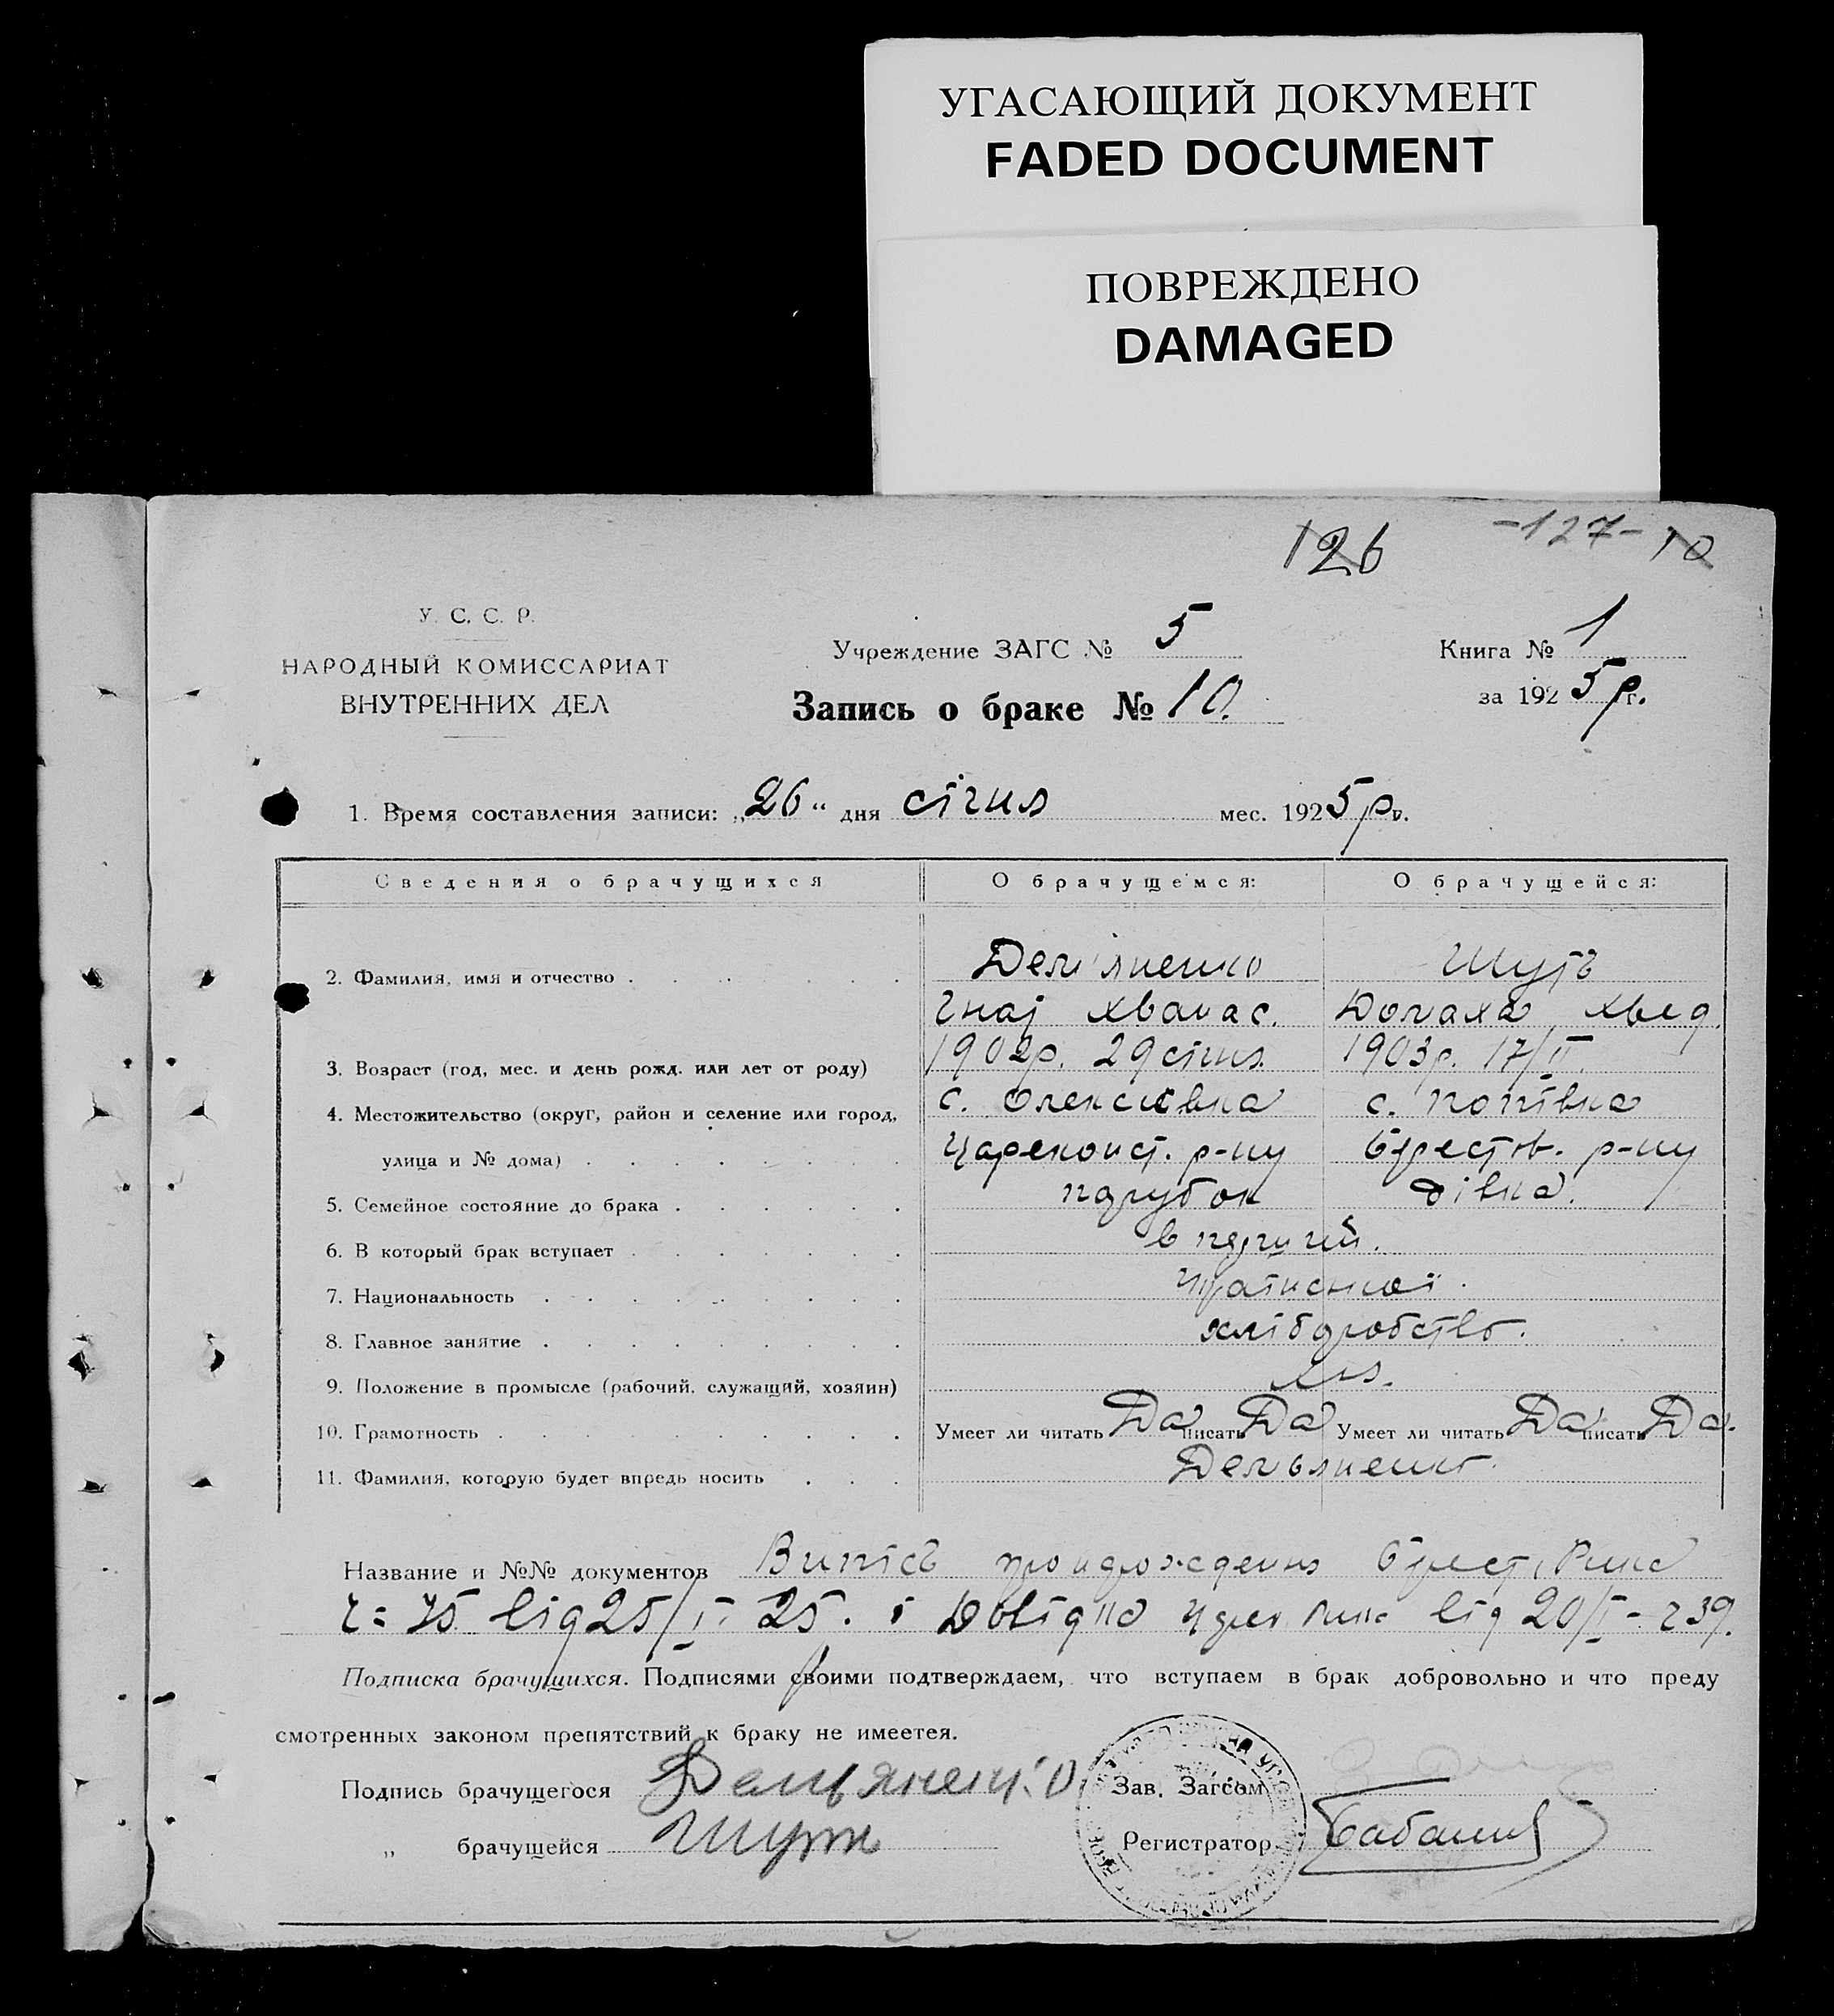 УГАСАЮЩИЙ ДОКУМЕНТ
FADED DOCUMENT
ПОВРЕЖДЕНО
DAMAGED
126 -127- 10
У. С. С. Р.
НАРОДНЫЙ КОМИССАРИАТ
ВНУТРЕННИХ ДЕЛ
Учреждение ЗАГС № 5
Запись о браке № 10.
Книга № 1
за 1925 р. г.
1. Время составления записи: „26“ дня січня мес. 1925 р. г.
Сведения о брачущихся О брачущемся: О брачущейся:
2. Фамилия, имя и отчество Дем'яненко Шуть
Гнат Хванас. Домаха Хвед.
3. Возраст (год, мес. и день рожд. или лет от роду) 1902р. 29 січня. 1903р. 17/II.
4. Местожительство (округ, район и селение или город, с. Олексіївка с. Попівка
улица и № дома) Цареконст. р-ну Берестов. р-ну
5. Семейное состояние до брака парубок дівка.
6. В который брак вступает в перший.
7. Национальность Української.
8. Главное занятие хліборобство.
9. Положение в промысле (рабочий, служащий, хозяин)
10. Грамотность Умеет ли читать Да писать Да Умеет ли читать Да писать Да.
11. Фамилия, которую будет впредь носить Демьяненко.
Название и №№ документов Випісь Берест.
75 від 25/I. 25. і Довідка від 20/I - 39.
Подписка брачущихся. Подписями своими подтверждаем, что вступаем в брак добровольно и что преду
смотренных законом препятствий к браку не имеетея.
Подпись брачущегося Демьяненко Зав. Загсом
„ брачущейся Шуть Регистратор